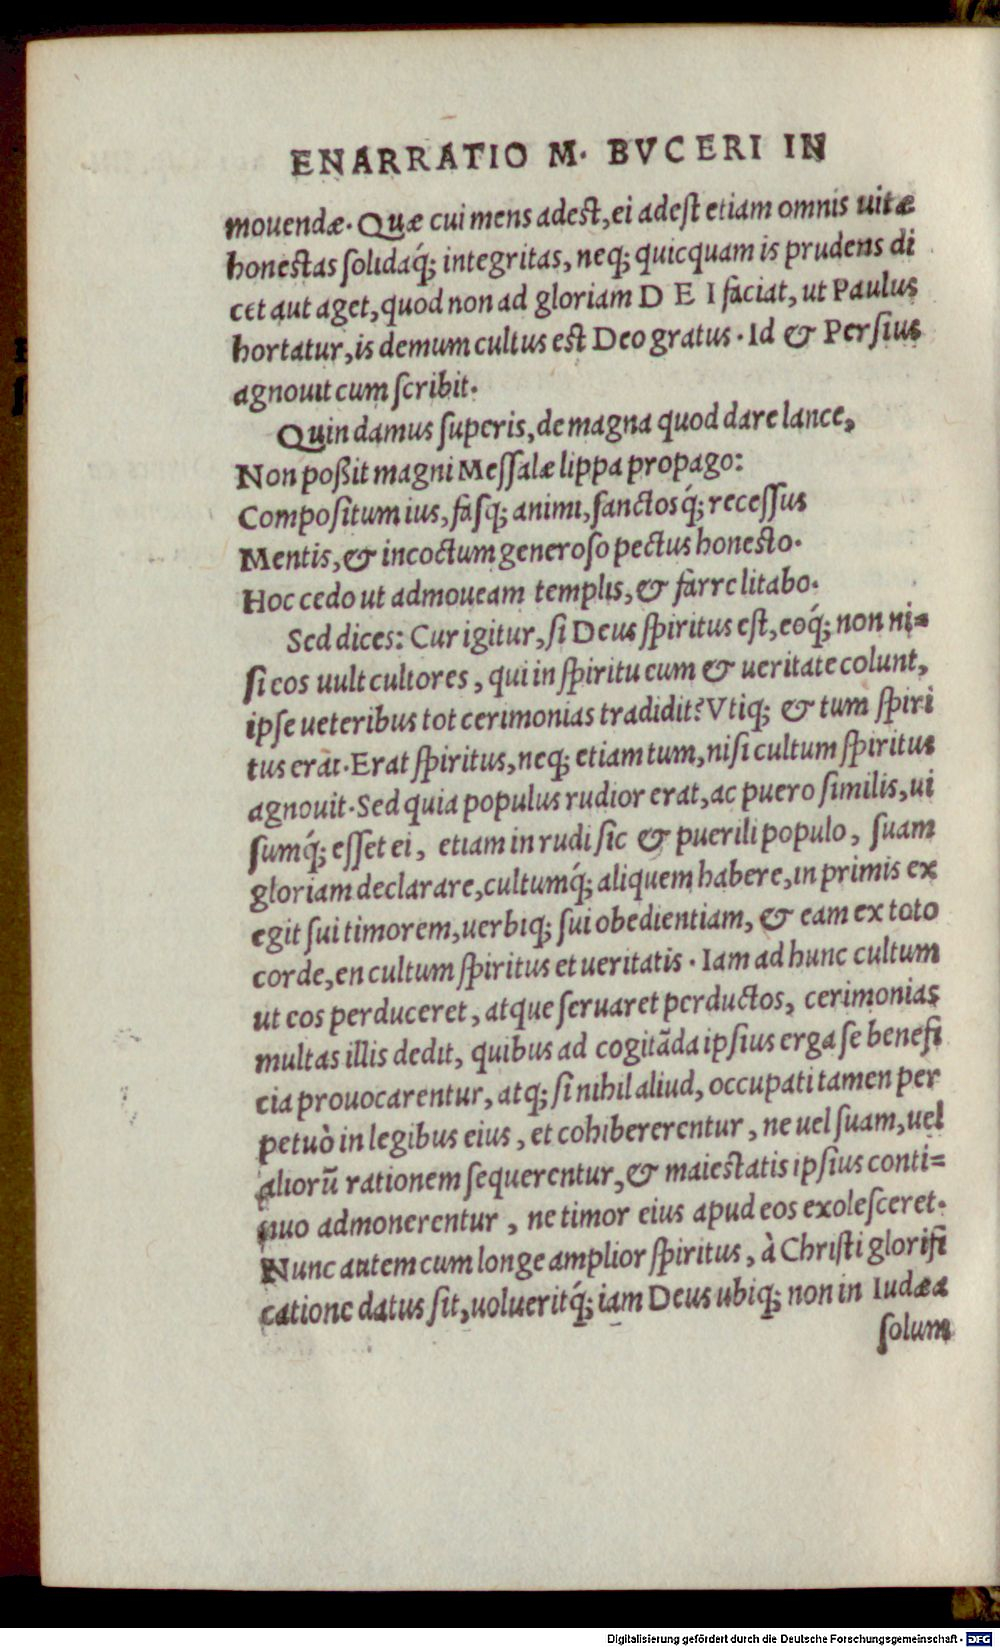 ENARRATIO M. BVCERI IN
mouendæ. Quæ cui mens adest, ei adeſt etiam omnis uitæ
honestas ſolidaq́;
integritas, neq; quicquam is prudens di
cet aut aget, quod non ad gloriam D E I faciat, ut Paulus
hortatur, is demum cultus est Deo gratus. Id & Perſius
agnouit cum ſcribit.
Quin damus ſuperis, de magna quod dare lance,
Non poßit magni Meſſalæ lippa propago:
Compoſitum ius, faſq; animi, ſanctosq́; receſſus
Mentis, & incoctum generoſo pectus honesto.
Hoc cedo ut admoueam templis, & farre litabo.
Sed dices: Cur igitur, ſi Deus ſpiritus eſt, eoq́; non ni=
ſi eos uult cultores, qui in ſpiritu eum & ueritate colunt,
ipſe ueteribus tot cerimonias tradidit? Vtiq; & tum ſpiri
tus erat. Erat ſpiritus, neq; etiam tum, niſi cultum ſpiritus
agnouit. Sed quia populus rudior erat, ac puero ſimilis, ui
ſumq́; eſſet ei, etiam in rudi ſic & puerili populo, ſuam
gloriam declarare, cultumq́; aliquem habere, in primis ex
egit ſui timorem, uerbiq; ſui obedientiam, & eam ex toto
corde, en cultum ſpiritus et ueritatis. Iam ad hunc cultum
ut eos perduceret, atque ſeruaret perductos, cerimonias
multas illis dedit, quibus ad cogitãda ipſius erga ſe benefi
cia prouocarentur, atq; ſi nihil aliud, occupati tamen per
petuò in legibus eius, et cohibererentur, ne uel ſuam, uel
aliorũ rationem ſequerentur, & maiestatis ipſius conti=
nuo admonerentur, ne timor eius apud eos exoleſceret.
Nunc autem cum longe amplior ſpiritus, à Chriſti glorifi
catione datus ſit, uolueritq́; iam Deus ubiq; non in Iudæa
ſolum
Digitalisierung gefördert durch die Deutsche Forschungsgemeinschaft - DFG